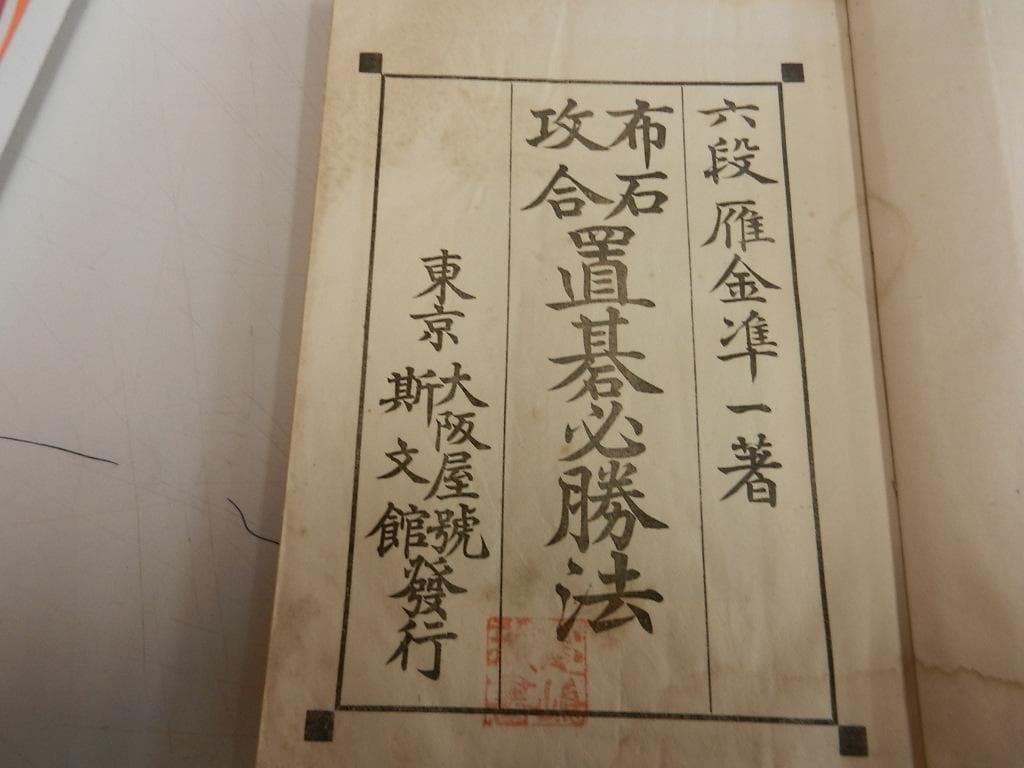 六段 雁金準一著
布石
攻合
置碁必勝法
東京
大阪屋號
斯文館
發行